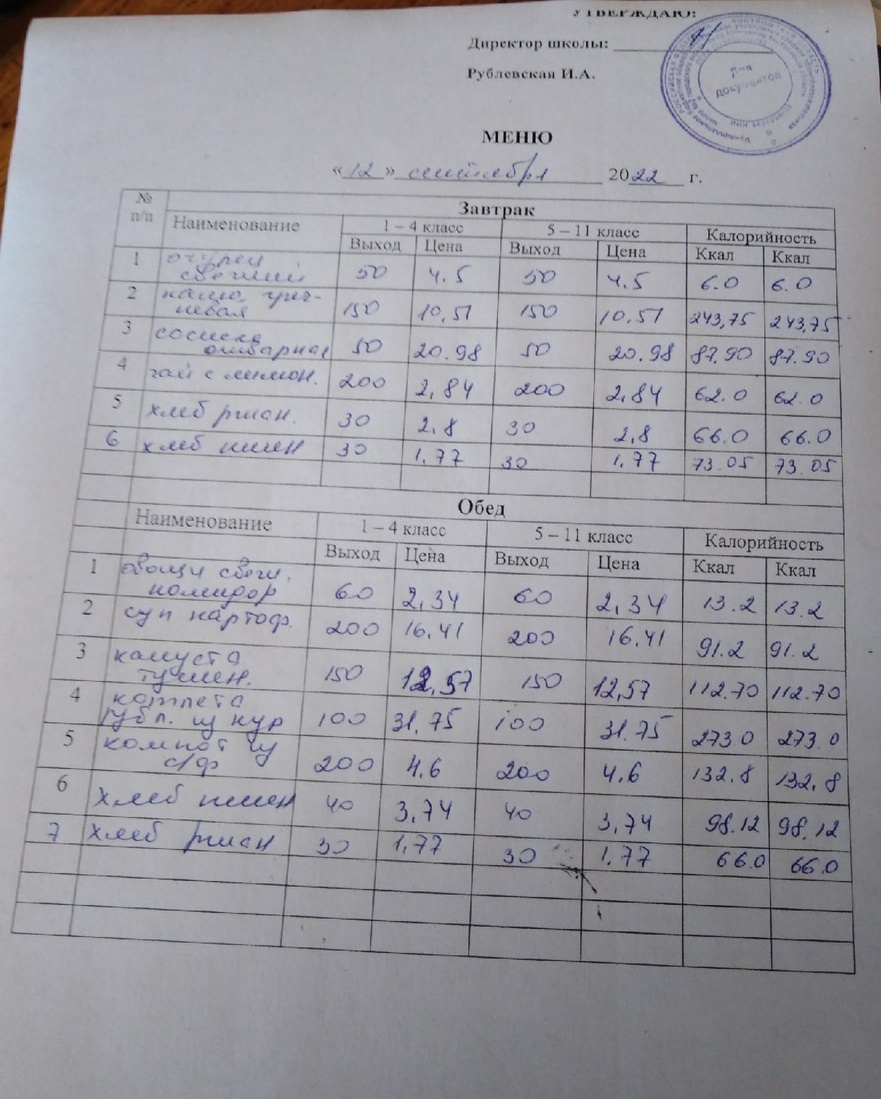 УТВЕРЖДАЮ:
Директор школы:
Рублевская И.А.
Для документов
МЕНЮ
«12» сентября 2022 г.
№ п/п Завтрак
Наименование 1 – 4 класс 5 – 11 класс Калорийность
Выход Цена Выход Цена Ккал Ккал
1 огурец свежий 50 4.5 50 4.5 6.0 6.0
2 каша греч-невая 150 10,51 150 10.51 243,75 243,75
3 сосиска отварная 50 20.98 50 20.98 87.90 87.90
4 чай с лимон. 200 2,84 200 2,84 62.0 62.0
5 хлеб ржан. 30 2.8 30 2,8 66.0 66.0
6 хлеб пшен 30 1.77 30 1.77 73.05 73.05
Обед
Наименование 1 – 4 класс 5 – 11 класс Калорийность
Выход Цена Выход Цена Ккал Ккал
1 овощи свеж. помидор 60 2,34 60 2,34 13.2 13.2
2 суп картоф. 200 16,41 200 16,41 91.2 91.2
3 капуста тушен. 150 12,57 150 12,57 112.70 112.70
4 котлета рубл. из кур 100 31,75 100 31.75 273.0 273.0
5 компот из с/ф 200 4,6 200 4,6 132.8 132,8
6 хлеб пшен 40 3,74 40 3,74 98.12 98.12
7 хлеб ржан 30 1,77 30 1.77 66.0 66.0